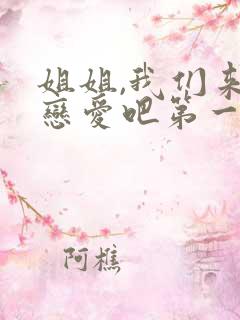 姐姐,我们来
戀愛吧第一
阿樵